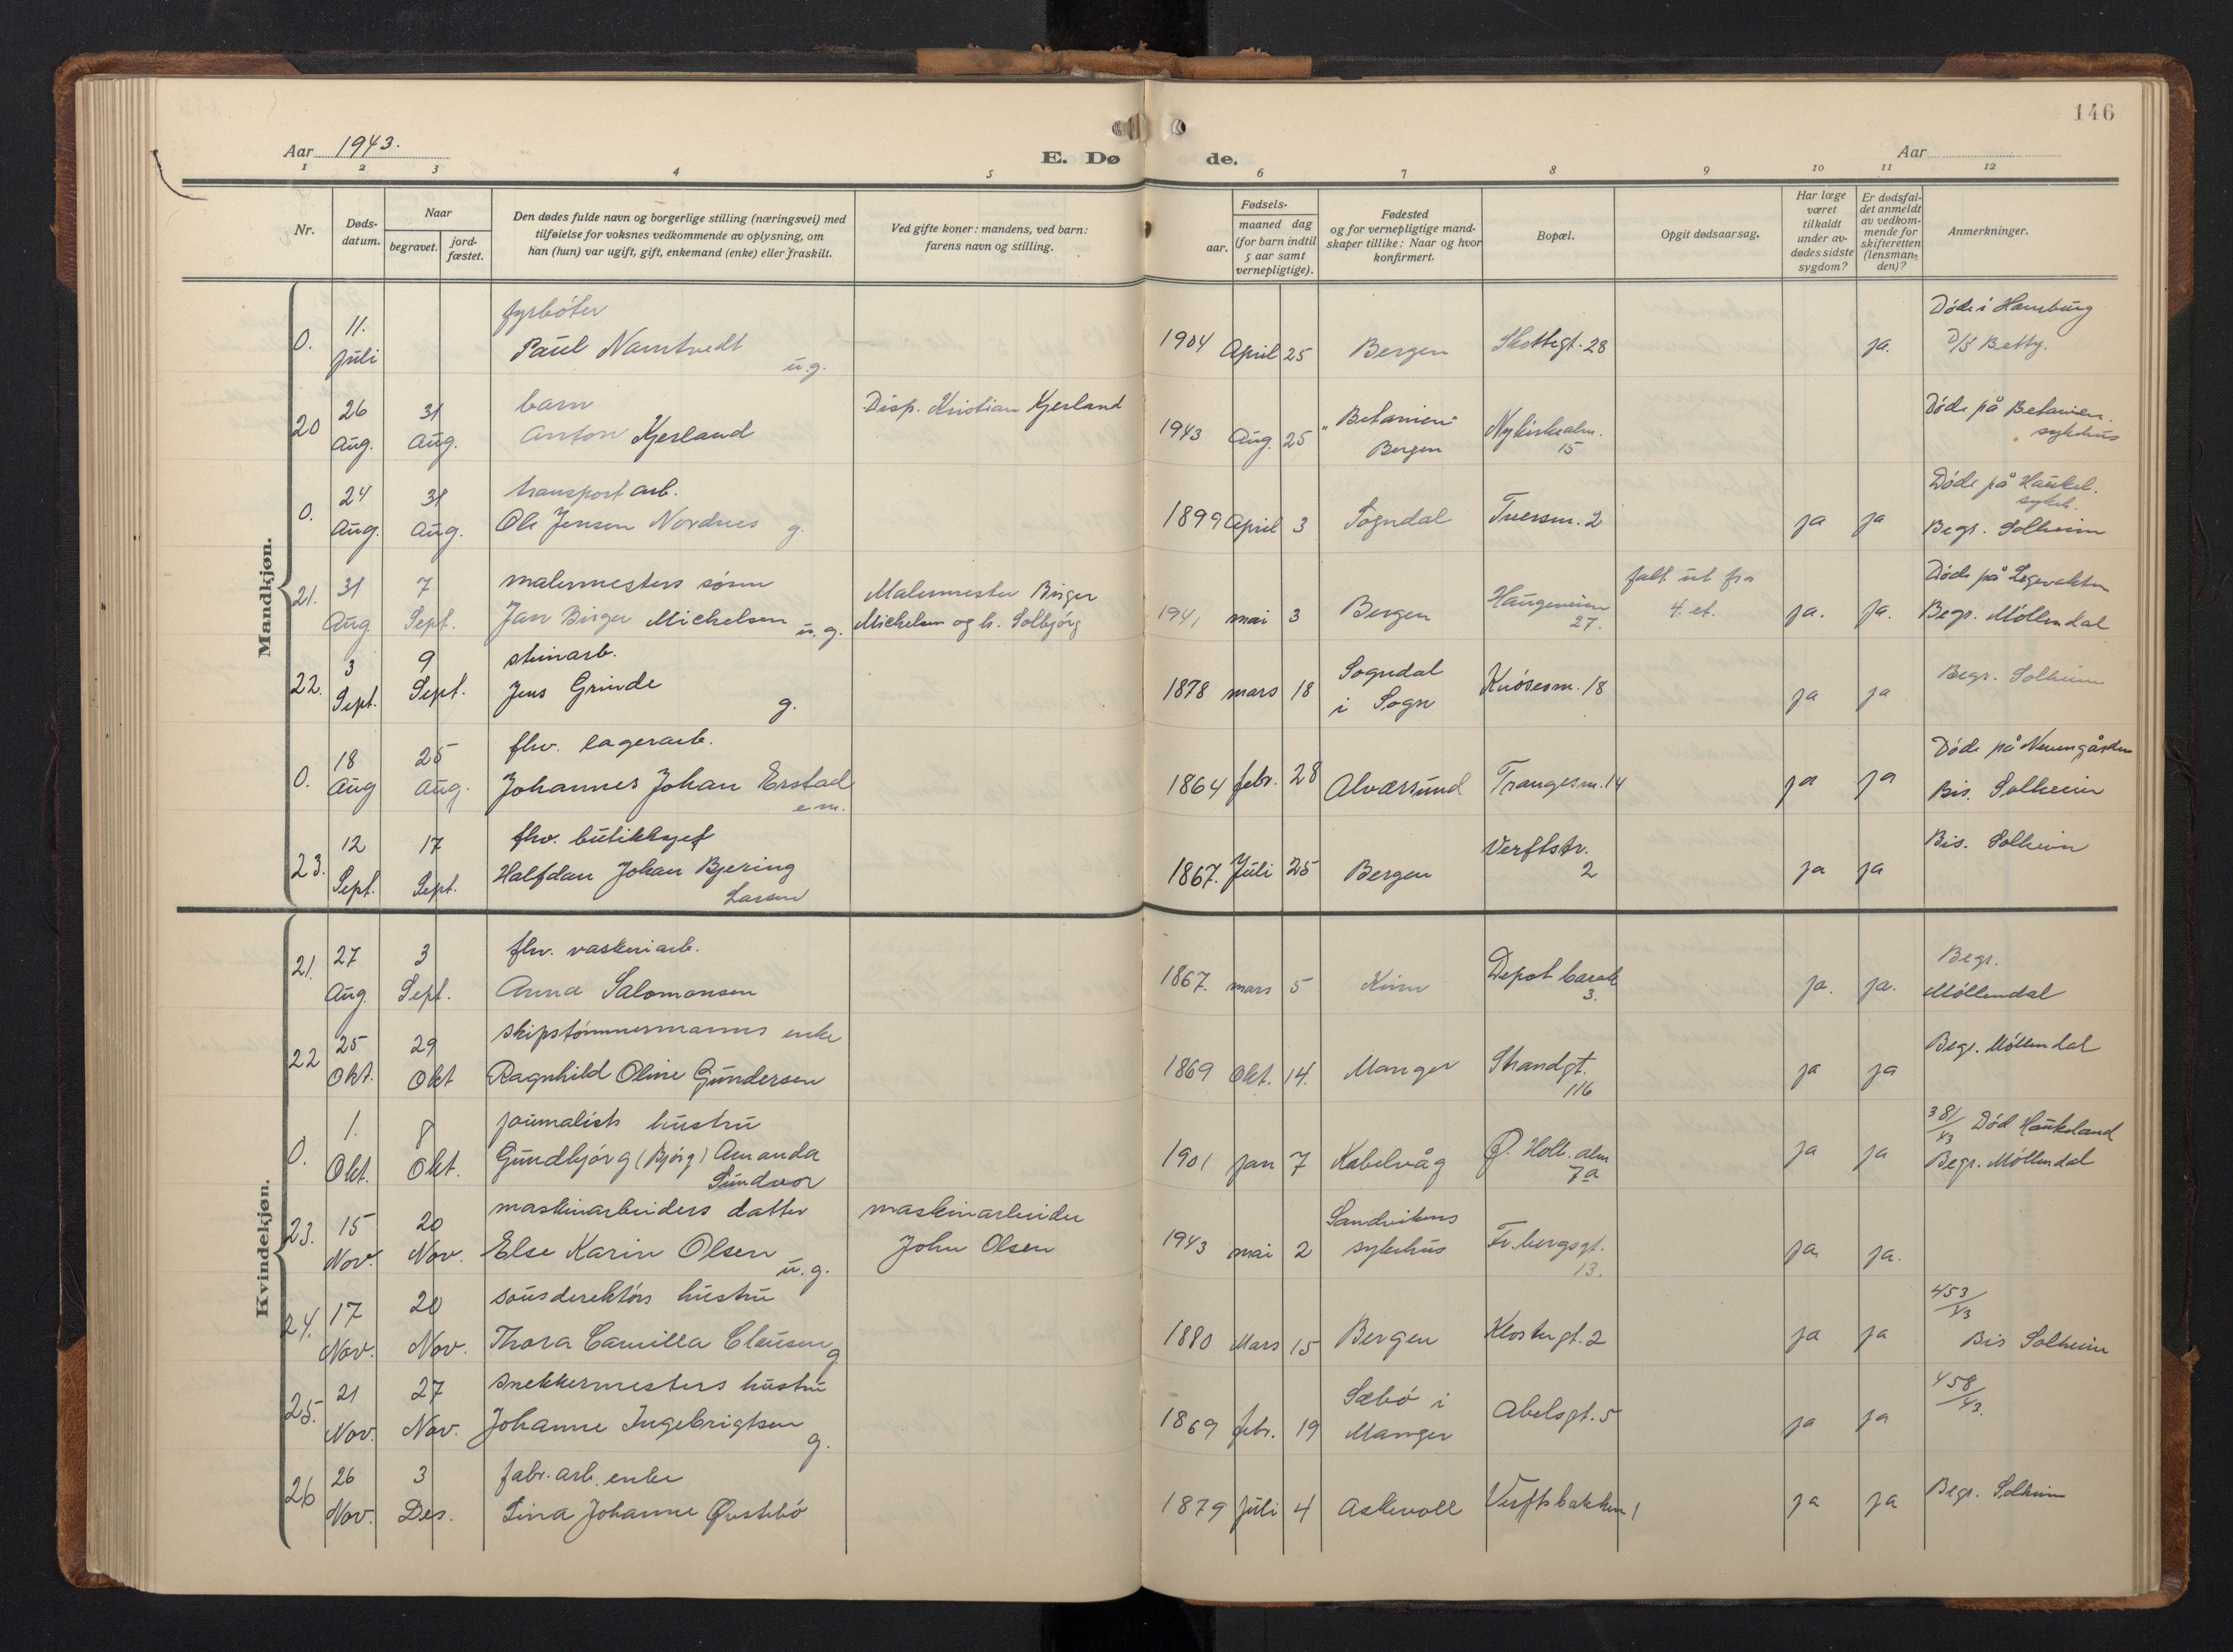 146
Aar 1943.
E. Døde.
Aar
1 2 3 4 5 6 7 8 9 10 11 12
Nr.
Døds-datum.
Naar
begravet.
jord-fæstet.
Den dødes fulde navn og borgerlige stilling (næringsvei) med
tilføielse for voksnes vedkommende av oplysning, om
han (hun) var ugift, gift, enkemand (enke) eller fraskilt.
Ved gifte koner: mandens, ved barn:
farens navn og stilling.
Fødsels-
aar.
maaned dag
(for barn indtil
5 aar samt
vernepligtige).
Fødested
og for vernepligtige mand-
skaper tillike: Naar og hvor
konfirmert.
Bopæl.
Opgit dødsaarsag.
Har læge
været
tilkaldt
under av-
dødes sidste
sygdom?
Er dødsfal-
det anmeldt
av vedkom-
mende for
skifteretten
(lensman-
den)?
Anmerkninger.
Mandkjøn.
fyrbøter Døde i Hamburg
0. 11. Juli Paul Namtvedt u.g. 1904 April 25 Bergen Skottegt. 28 ja. D/S Betty.
20 26 Aug. 31 Aug. barn Anton Kjerland Disp. Kristian Kjerland 1943 Aug. 25 "Betanien" Bergen Nykirkealm. 15 Døde på Betanien sykehus
0. 24 Aug. 31 Aug. transport arb. Ole Jensen Nordnes g. 1899 April 3 Sogndal Tversm. 2 ja ja Døde på Haukel. sykeh. Begr. Solheim
21. 31 Aug. 7 Sept. malermesters sønn Jan Birger Michelsen u.g. Malermester Birger Michelsen og h. Solbjørg 1941 mai 3 Bergen Haugeveien 27. falt ut fra 4. et. ja. ja. Døde på Legevakten Begr. Møllendal
22. 3 Sept. 9 Sept. steinarb. Jens Grinde g. 1878 mars 18 Sogndal i Sogn Knøsesm. 18 ja ja Begr. Solheim
0. 18 Aug 25 Aug. fhv. lagerarb. Johannes Johan Erstad e.m. 1864 febr. 28 Alversund Trangesm. 14 ja ja Døde på Nevengården Bis. Solheim
23. 12 Sept. 17 Sept. fhv. butikksjef Halfdan Johan Bjering Larsen 1867. Juli 25 Bergen Verftstr. 2 ja ja Bis. Solheim
Kvindekjøn.
21. 27 Aug. 3 Sept. fhv. vaskeriarb. Anna Salomonsen 1867. mars 5 Kinn Depot barak 3. ja. ja. Begr. Møllendal
22 25 Okt. 29 Okt skipstømmermanns enke Ragnhild Oline Gundersen 1869 Okt. 14. Manger Strandgt. 116 ja ja Begr. Møllendal
0. 1. Okt. 8 Okt. journalists hustru Gundbjørg (Bjørg) Amanda Sundvor 1901 jan 7 Kabelvåg Ø. Holb. alm 7a ja ja 381/43 Død Haukeland Begr. Møllendal
23. 15 Nov. 20 Nov. maskinarbeiders datter Else Karin Olsen u.g. maskinarbeider John Olsen 1943 mai 2 Sandvikens sykehus Fr. bergsgt. 13. ja ja.
24. 17 Nov. 20 Nov. hustru Thora Camilla Clausen g. 1880 Mars 15 Bergen Klostergt. 2 ja ja 453/43 Bis Solheim
25. 21 Nov. 27 Nov. snekkermesters hustru Johanne Ingebrigtsen g. 1869 febr. 19 Sæbø i Manger Abelsgt. 5 ja ja 458/43.
26 26 Nov. 3 Des. fabr. arb. enke Lina Johanne Øvstebø 1879 Juli 4 Askvoll Verftsbakken 1 ja ja Begr. Solheim